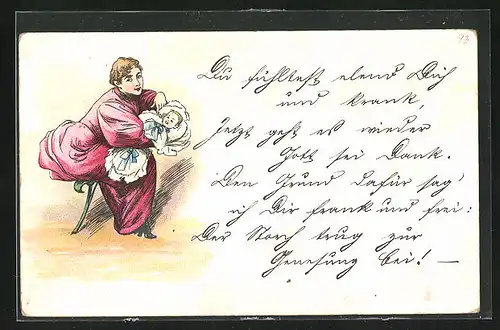 93
Du fühltest elend Dich
und krank,
Jetzt geht es wieder
Gott sei Dank.
Den Grund dafür sag'
ich Dir frank und frei:
Der Storch trug zur
Genesung bei! —